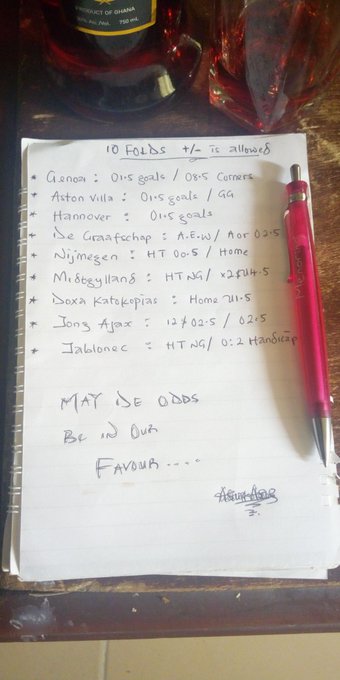 PRODUCT OF GHANA
750 mL
10 FOLDS +/- is allowed
* Genoa : O1.5 goals / O8.5 Corners
* Aston Villa : O1.5 goals / GG
* Hannover : O1.5 goals
* De Graafschap : A.E.W / A or O2.5
* Nijmegen : HT O0.5 / Home
* Midtgylland : HT NG / x2 & U4.5
* Doxa Katokopias : Home U1.5
* Jong Ajax : 12 & O2.5 / O2.5
* Jablonec : HT NG / 0:2 Handicap
MAY DE ODDS
BE IN OUR
FAVOUR ....